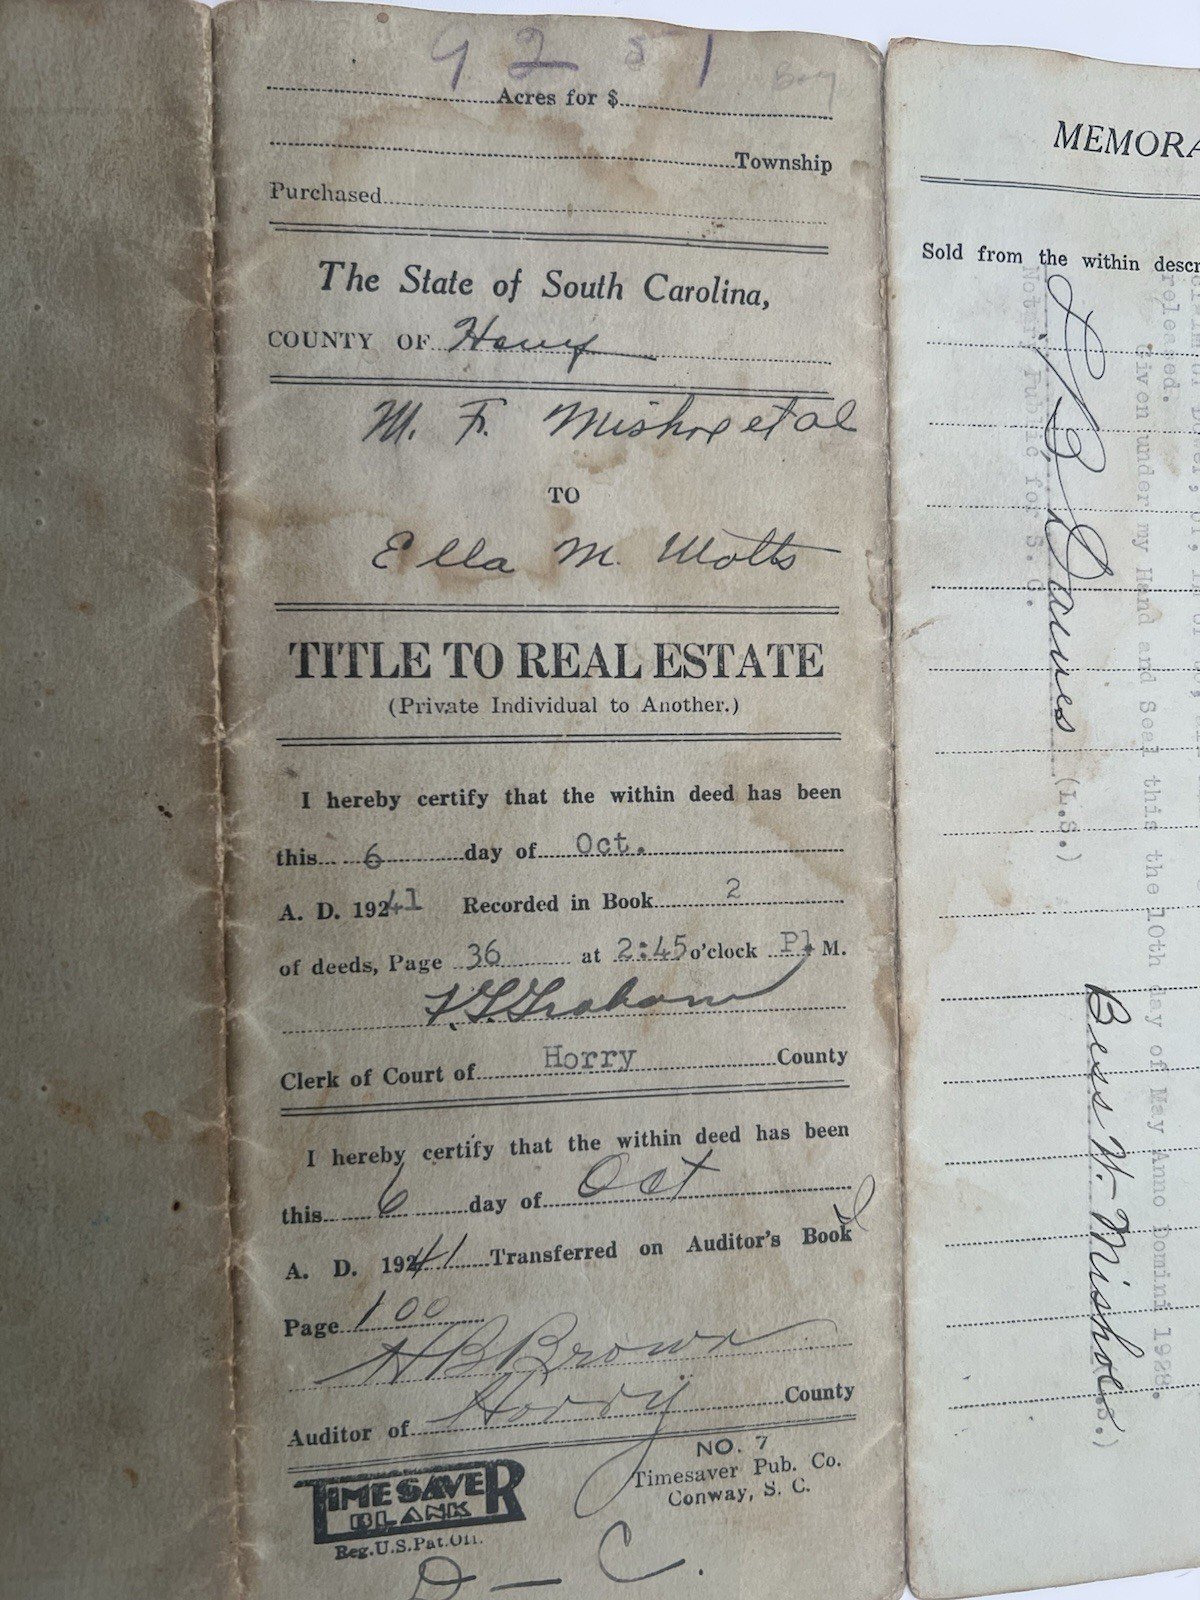 9 2 51 Boy
Acres for $
Township
Purchased
The State of South Carolina,
COUNTY OF Horry
M. F. Mishoe et al
TO
Ella M. Watts
TITLE TO REAL ESTATE
(Private Individual to Another.)
I hereby certify that the within deed has been
this 6 day of Oct.
A. D. 19241 Recorded in Book 2
of deeds, Page 36 at 2:45 o'clock P. M.
Graham
Clerk of Court of Horry County
I hereby certify that the within deed has been
this 6 day of Oct
A. D. 19241 Transferred on Auditor's Book
Page 100
H B Brown
Auditor of Horry County
TIMESAVER
BLANK
Reg. U.S. Pat. Off.
NO. 7
Timesaver Pub. Co.
Conway, S. C.
D - C.
MEMORA
Sold from the within descr
released.
Given under my Hand and Seal this the 10th day of May Anno Domini 1928.
Bess W. Mishoe
(L.S.)
Notary Public for S. C.